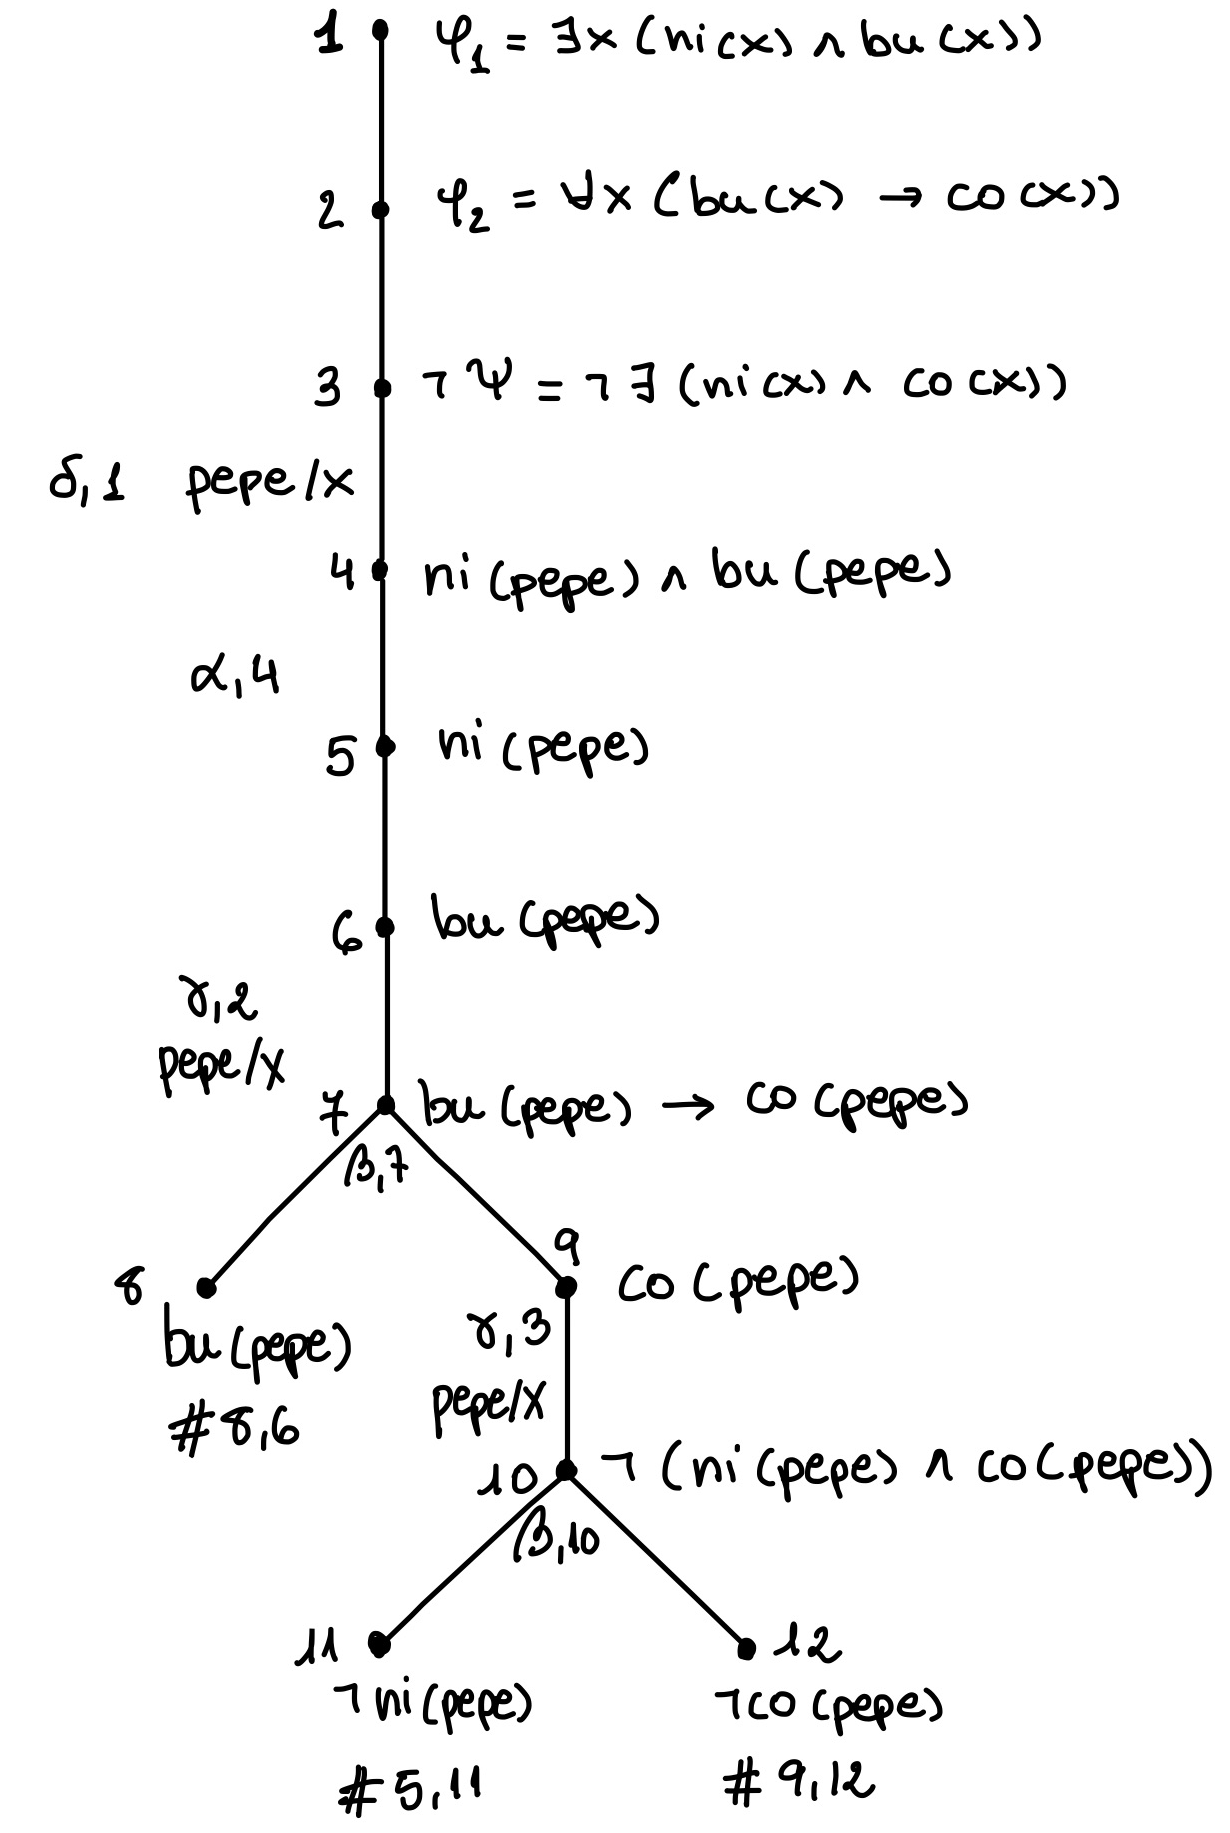 1 φ₁ = ∃x (ni(x) ∧ bu(x))
2 φ₂ = ∀x (bu(x) → co(x))
3 ¬Ψ = ¬∃ (ni(x) ∧ co(x))
δ,1 pepe/x
4 ni(pepe) ∧ bu(pepe)
α,4
5 ni(pepe)
6 bu(pepe)
γ,2
pepe/x
7 bu(pepe) → co(pepe)
β,7
9
8 co(pepe)
bu(pepe) γ,3
#8,6 pepe/x
10 ¬(ni(pepe) ∧ co(pepe))
β,10
11 12
¬ni(pepe) ¬co(pepe)
#5,11 #9,12